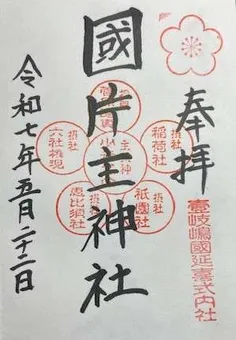 奉拝
壹岐嶋國延喜式内社
國片主神社
摂社
稲荷社
摂社
祇園社
摂社
恵比須社
摂社
六社権現
主
神
令和七年五月二十二日